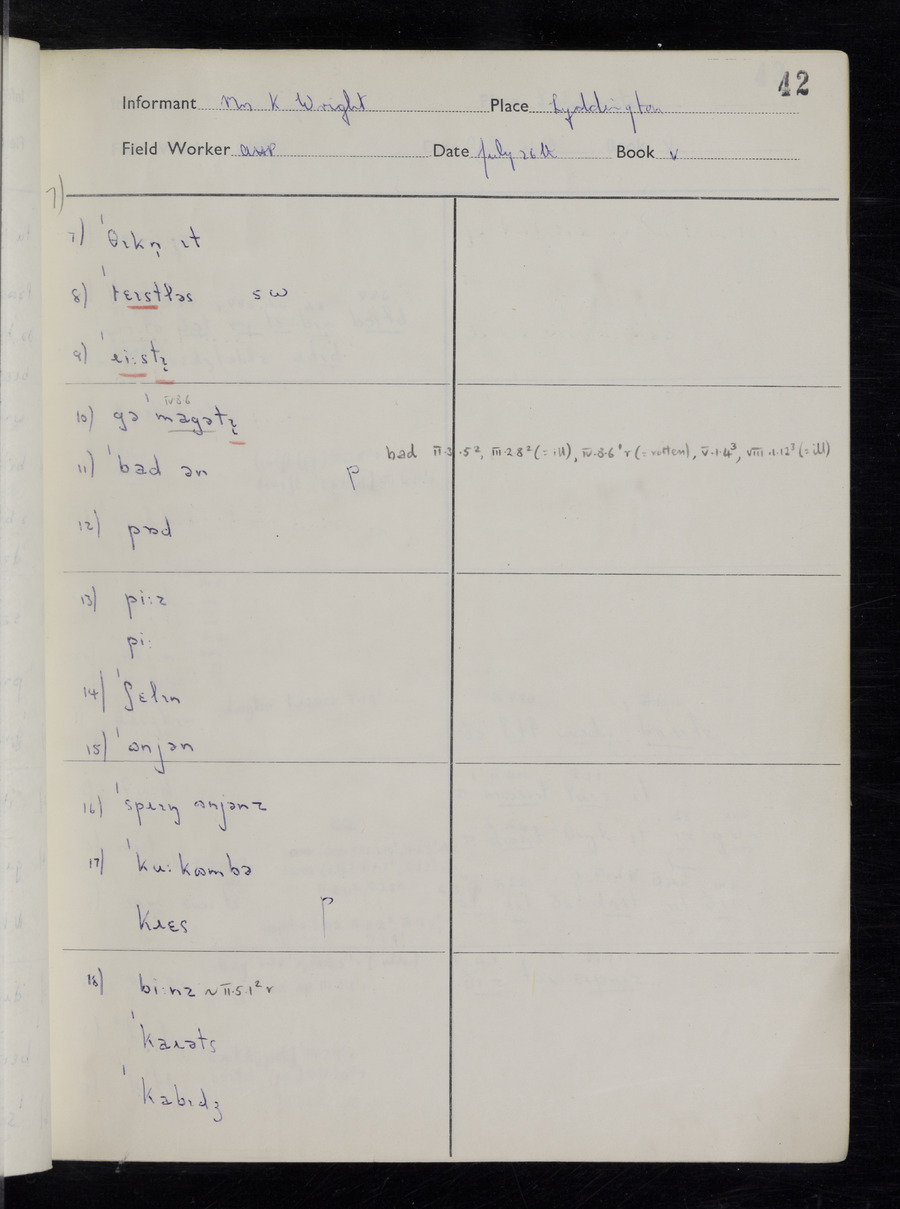 42
Informant Mrs K Wright Place Lyddington
Field Worker Date July 26th Book V
7)
7) ˈθɪkn̩ ɪt
8) ˈtɛɪstləs s w
9) ˈeiːstɪ̞
10) gə ˈmagətɪ̞ IV·8·6
bad II·3·5², III·2·8² (= ill), IV·8·6¹ r (= rotten), V·1·4³, VIII·1·12³ (= ill)
11) ˈbad ən p
12) pɒd
13) piːz
piː
14) ˈʃɛlɪn
15) ˈɷnjən
16) ˈspɹɪŋ ɷnjənz
17) ˈkuːkɷmbə
kɹɛs p
18) biːnz ~ II·5·1² r
ˈkaɹəts
ˈkabɪdʒ